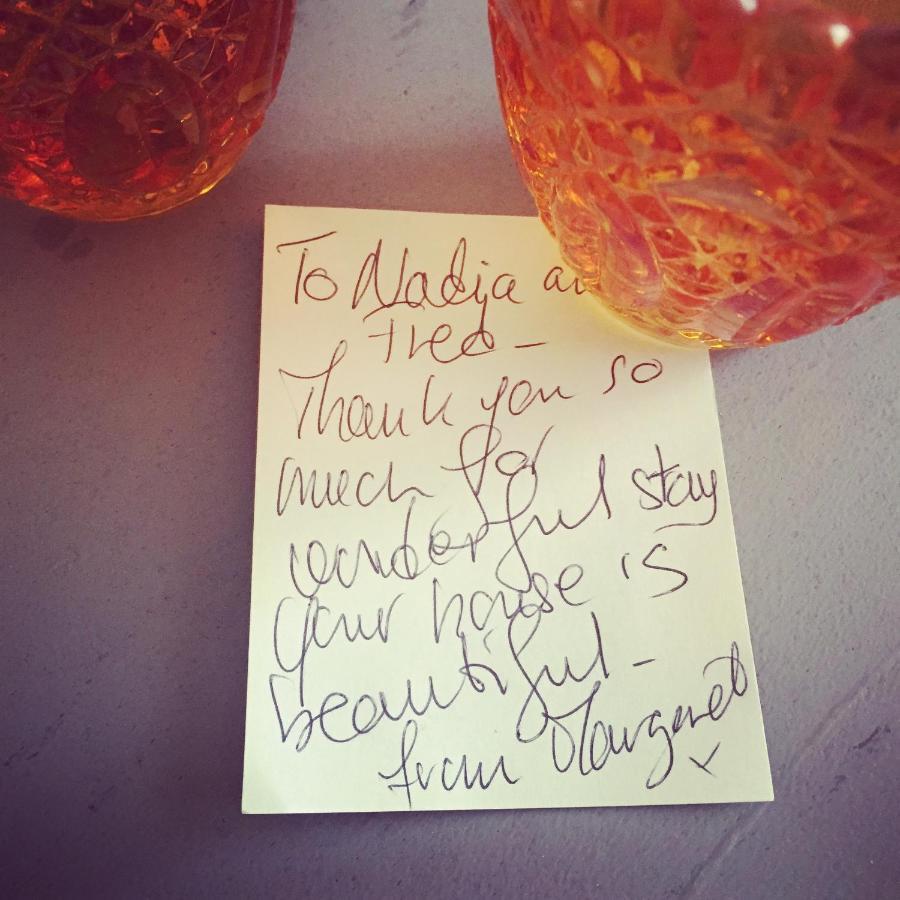 To Nadja an
Fred -
Thank you so
much for
wonderful stay
your house is
beautiful -
from Margaret